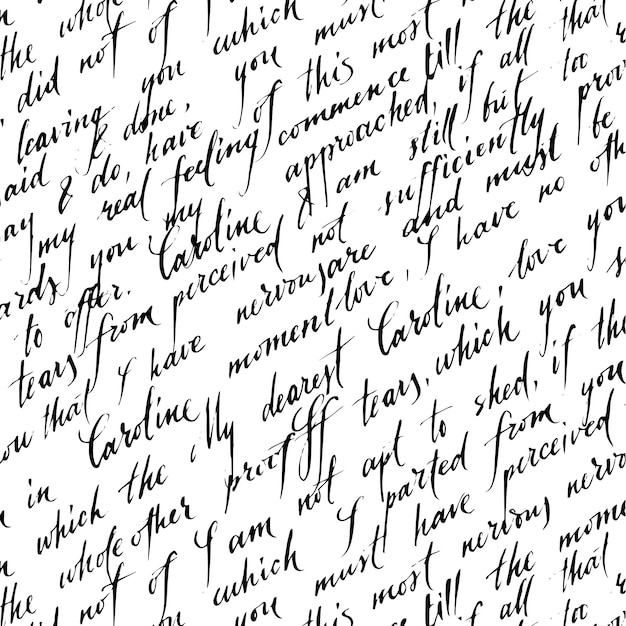 the whole of which must the that
did not of you must this most till
leaving you of commence if all too
said & done, have feeling approached, but prov
ay & do, real my am still sufficiently be
my you Caroline & not and must no oth
ards offer. perceived nervous are I have
to from I have moment love, love you
tears that Caroline, which you s
ou Caroline My dearest tears, shed, if the
in which the proof off apt to from you
n the whole other I am not I parted perceived
the did not of which must have nervous
you this most till the mome
if all that
too